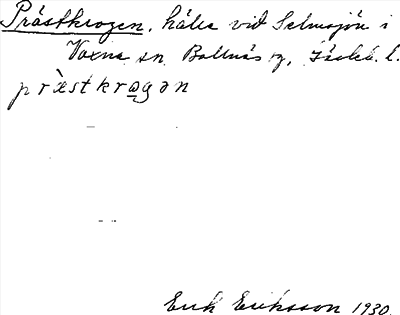 Prästkragen, hälla vid Selmsjön i
Voxna sn. Bollnäs tg, Gävleb. l.
pr䮀stkragən
Erik Eriksson 1930.